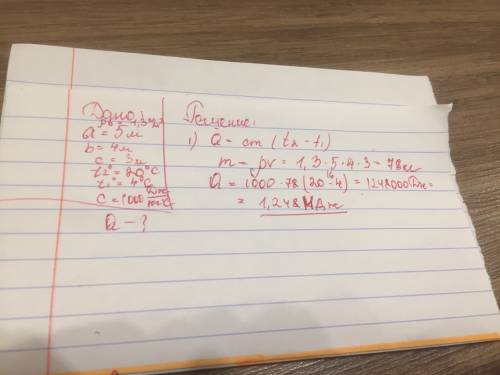 Дано:
ρв = 1,3
a = 5 м
b = 4 м
c = 3 м
t2 = 20°C
t1 = 4°C
c = 1000 Дж/кг°C
Q — ?
Решение:
1) Q = cm (t2 - t1)
m = ρv = 1,3 · 5 · 4 · 3 = 78 кг
Q = 1000 · 78 (20 - 4) 16 = 1248000 Дж =
= 1,248 МДж